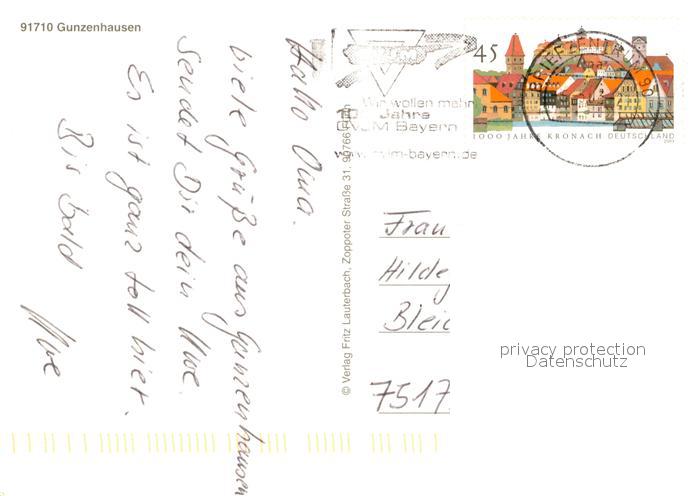 91710 Gunzenhausen
Hallo Oma.
viele Grüße aus Gunzenhausen
Sendet Dir dein Uwe.
Es ist ganz toll hier.
Bis Bald
Uwe
© Verlag Fritz Lauterbach, Zoppoter Straße 31, 90766 Fürth
Wir wollen mehr
Jahre
CVJM Bayern
www.cvjm-bayern.de
45
1000 JAHRE KRONACH DEUTSCHLAND
2003
BRIEFZENTRUM
Frau
Hilde
Blei
7517
privacy protection
Datenschutz